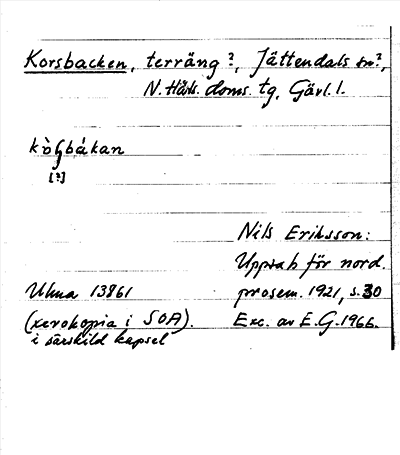 Korsbacken, terräng?, Jättendals sn?,
N. Häls. doms. tg, Gävl. l.
kòʂbákan
[?]
Nils Eriksson:
Uppsats för nord.
Uluma 13861 prosem. 1921, s. 30
(xerokopia i SOA). Exc. av E. G. 1966.
i särskild kapsel